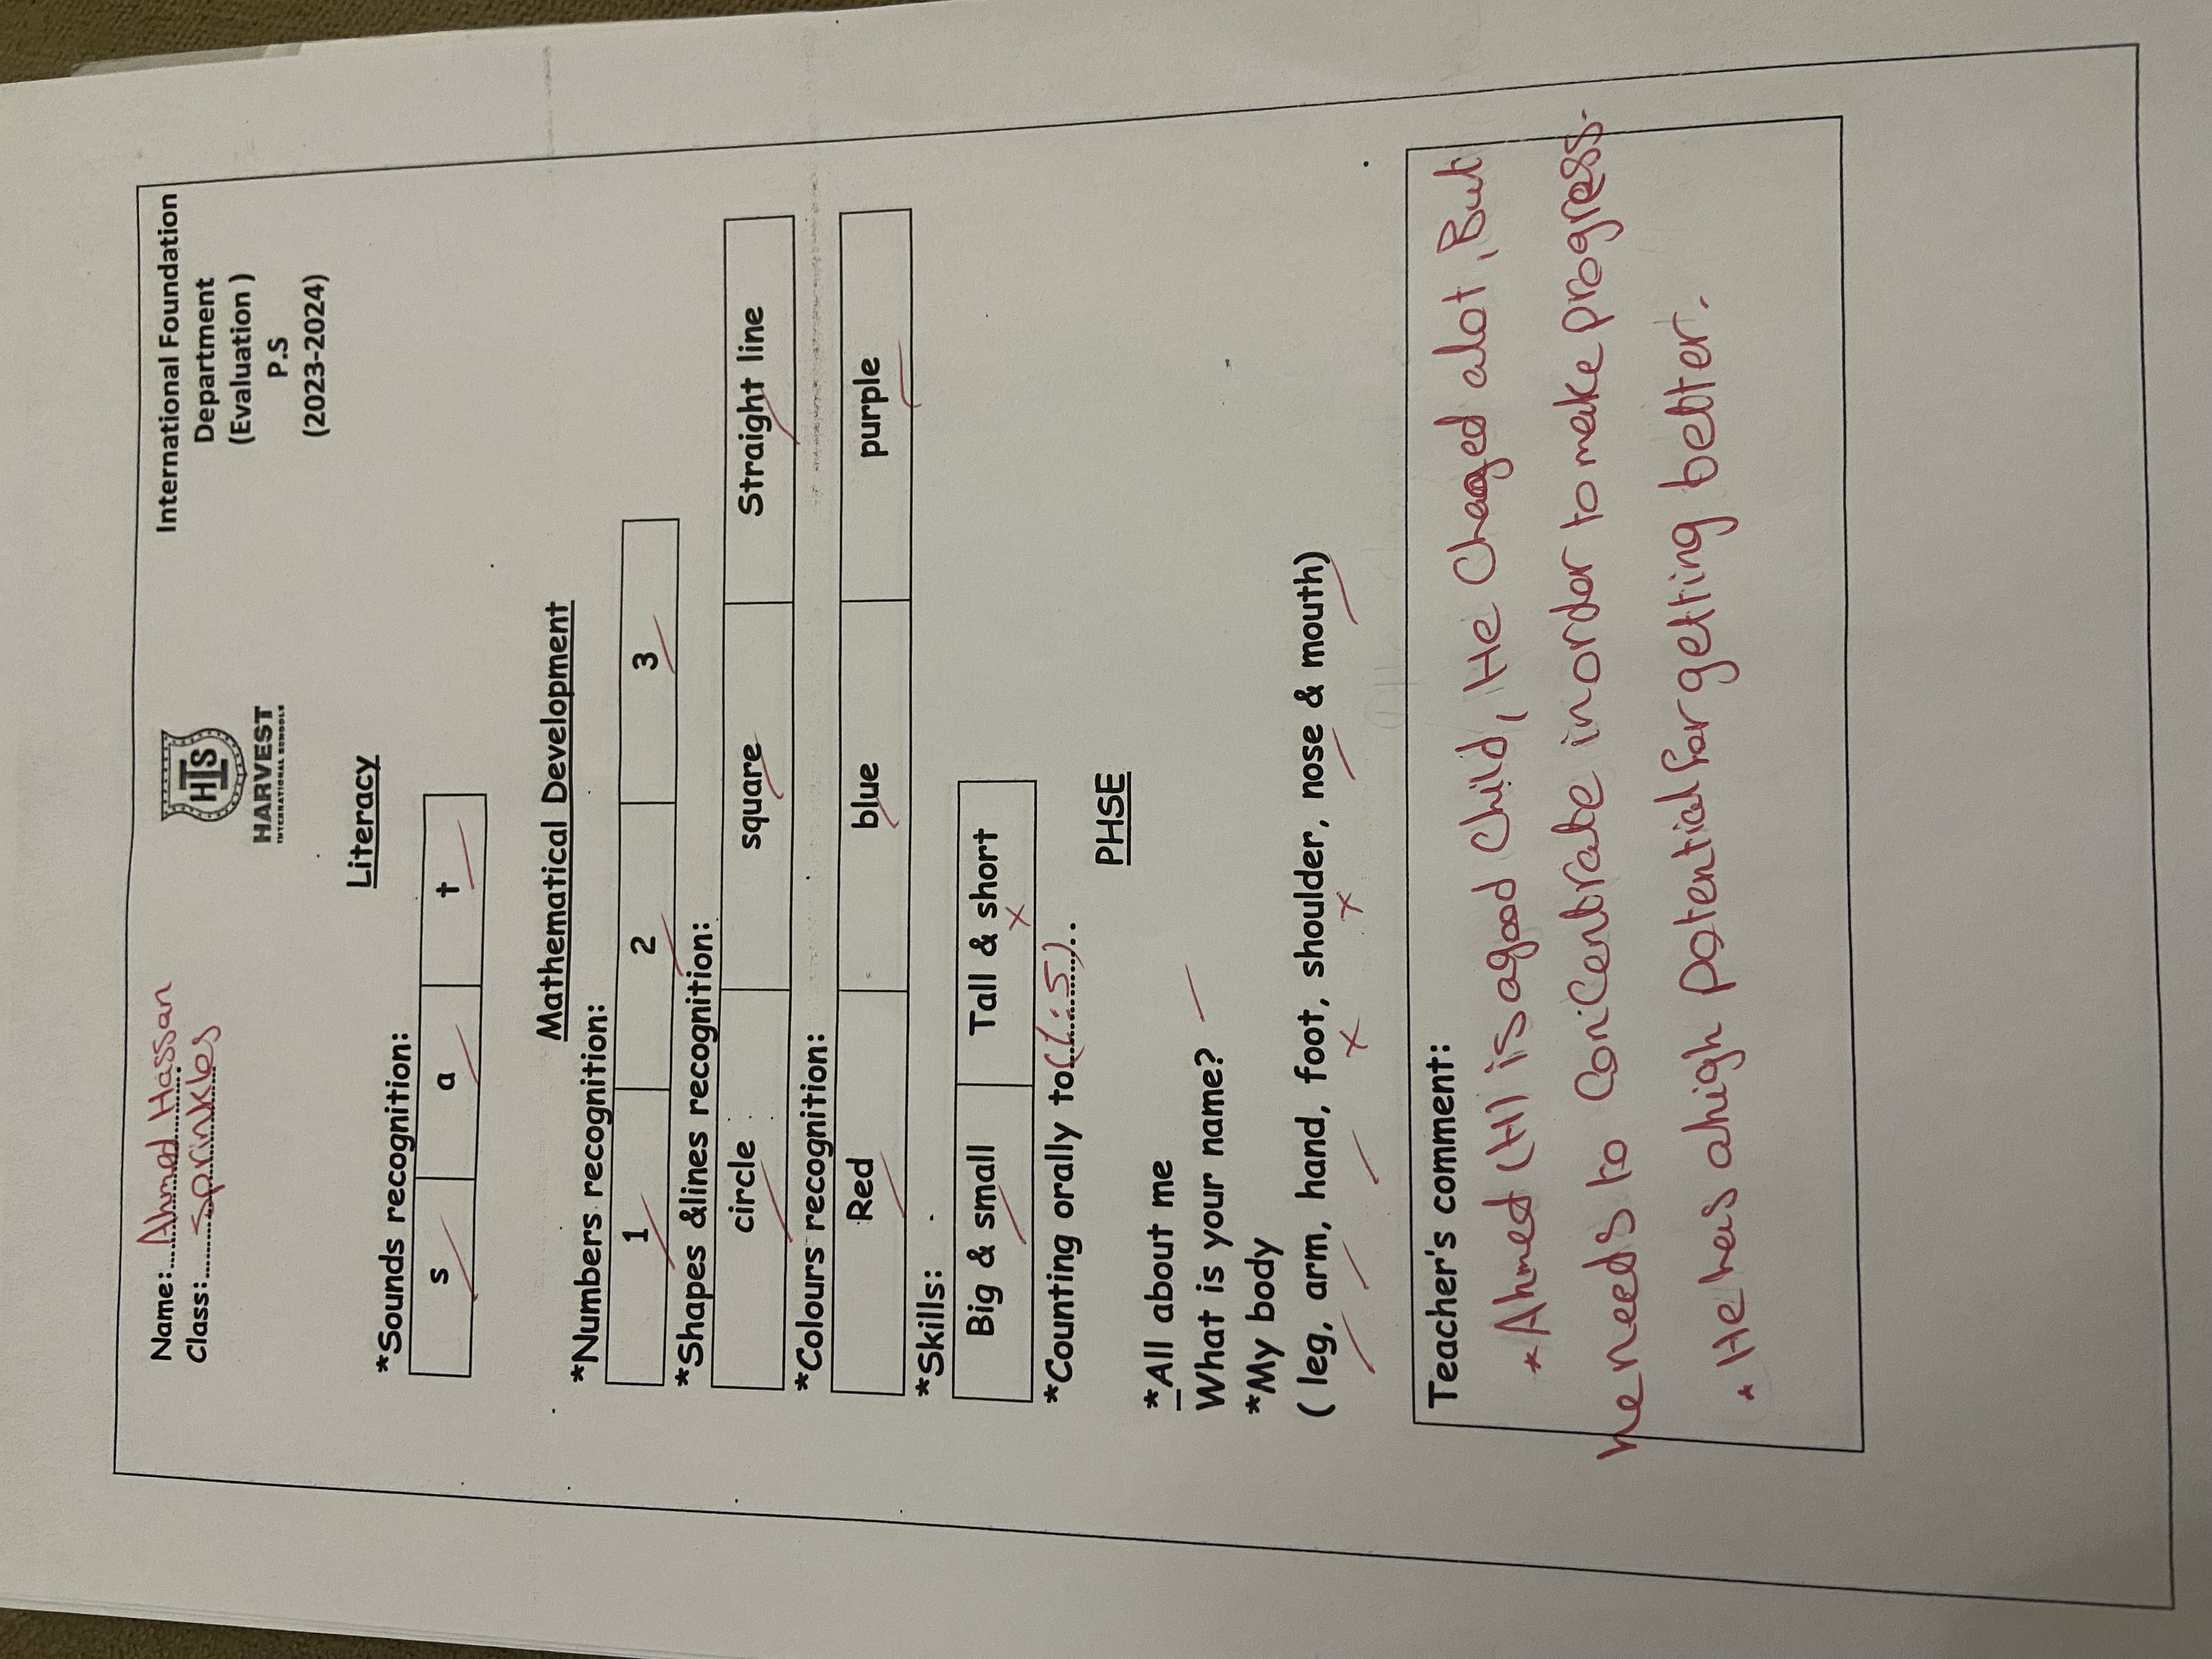 International Foundation
Department
(Evaluation )
P.S
(2023-2024)
HIS
HARVEST
INTERNATIONAL SCHOOLS
Name:....Ahmed Hassan
Class:......Sprinkles
Literacy
*Sounds recognition:
s a t
Mathematical Development
*Numbers recognition:
1 2 3
*Shapes &lines recognition:
circle square Straight line
*Colours recognition:
Red blue purple
*Skills:
Big & small Tall & short
*Counting orally to(1:5)..
PHSE
*All about me
What is your name?
*My body
( leg, arm, hand, foot, shoulder, nose & mouth)
Teacher's comment:
*Ahmed (H) is agood child, He Chaged alot, But
he needs to concentrate inorder to make progress.
* He has ahigh potential for getting better.